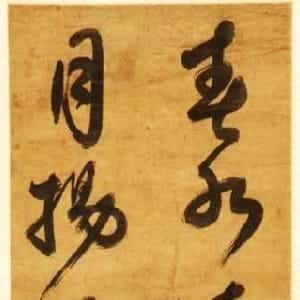 春水
月揚